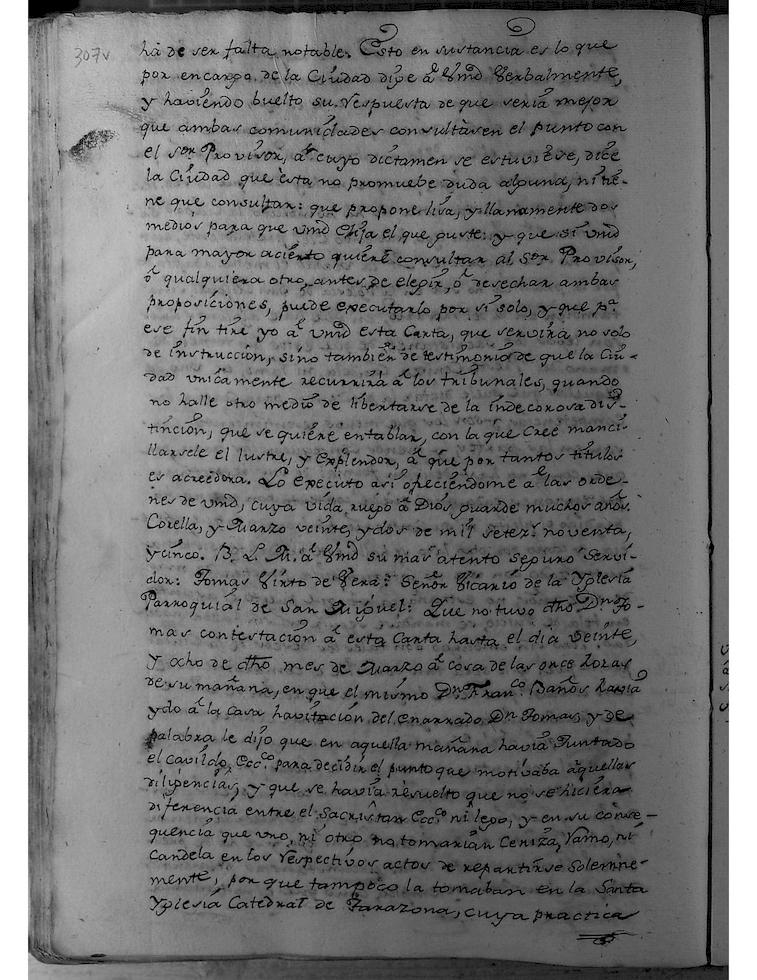 307v
hà de ser falta notable. Esto en sustancia es lo que
por encargo de la Ciudad dije â Vmd Verbalmente,
y haviendo buelto su Respuesta de que seria mejor
que ambas comunidades consultàsen el punto con
el Sor Provisor, â cuyo dictamen se estuviese, dice
la Ciudad que èsta no promuebe duda alguna, ni tie-
ne que consultar: que propone lisa, y llanamente dos
medios para que Vmd Elija el que guste: y que si Vmd
para mayor acierto quiere consultar al Sor Provisor,
ô qualquiera otro, antes de elegir, ô desechar ambas
proposiciones, puede executarlo por si solo, y que pa
ese fin tire yo â Vmd esta Carta, que servirà no solo
de instruccion, sino tambien de testimonio de que la Ciu-
dad unicamente recurrirà â los tribunales, quando
no halle otro medio de libertarse de la indecorosa dis-
tincion, que se quiere entablar, con la que Cree manci-
llarsele el lustre, y Explendor, â que por tantos titulos
es acreedora. Lo Executo asi ofreciendome â las orde-
nes de Vmd, cuya vida ruego â Dios guarde muchos años.
Corella, y Marzo veinte, y dos de mil setezs noventa,
y cinco. B. L. M. â Vmd su mas atento seguro Servi-
dor: Tomas Virto de Vera: Señor Vicario de la Yglesia
Parroquial de San Miguel: Que no tuvo dho Dn To-
mas contestacion â esta Carta hasta el dia veinte,
y ocho de dho mes de Marzo â cosa de las once horas
de su mañana, en que el mismo Dn Franco Baños havia
ydo â la Casa havitacion del enarrado Dn Tomas, y de
palabra le dijo que en aquella mañana havia Juntado
el Cavildo Ecco para decidir el punto que motivaba aquellas
diligencias, y que se havia resuelto que no se hiciera
diferencia entre el Sacristan Ecco ni lego, y en su conse-
quencia que uno, ni otro no tomarian Ceniza, Ramo, ni
Candela en los Respectivos actos de repartirse Solemne-
mente, por que tampoco la tomaban en la Santa
Yglesia Catedral de Tarazona, cuya practica